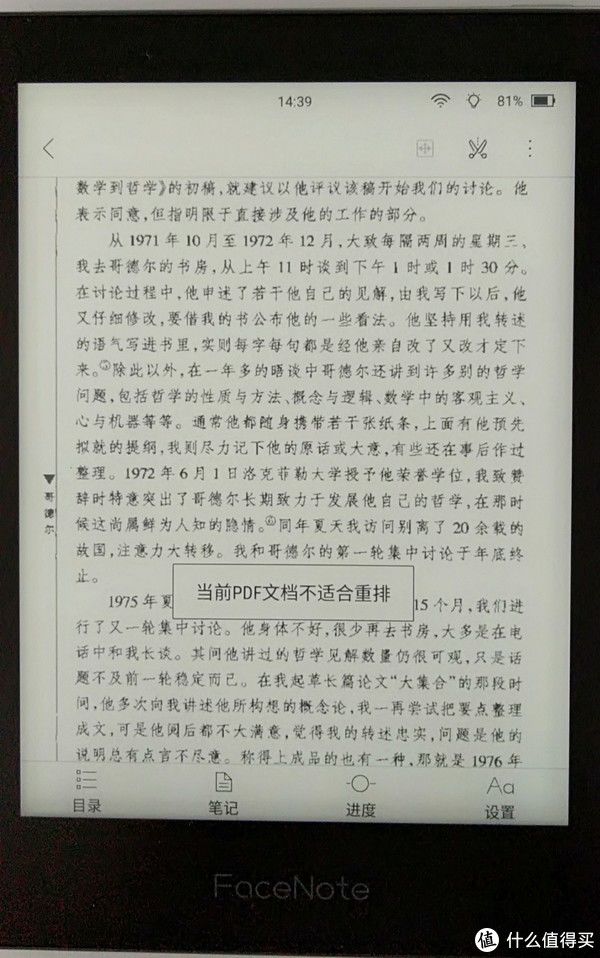 14:39
81%
数学到哲学》的初稿,就建议以他评议该稿开始我们的讨论。他
表示同意,但指明限于直接涉及他的工作的部分。
从 1971 年 10 月至 1972 年 12 月,大致每隔两周的星期三、
我去哥德尔的书房,从上午 11 时谈到下午 1 时或 1 时 30 分。
在讨论过程中,他申述了若干他自己的见解,由我写下以后,他
又仔细修改,要借我的书公布他的一些看法。他坚持用我转述
的语气写进书里,实则每字每句都是经他亲自改了又改才定下
来。⑤除此以外,在一年多的晤谈中哥德尔还讲到许多别的哲学
问题,包括哲学的性质与方法、概念与逻辑、数学中的客观主义、
心与机器等等。通常他都随身携带若干张纸条,上面有他预先
拟就的提纲,我则尽力记下他的原话或大意,有些还在事后作过
整理。1972 年 6 月 1 日洛克菲勒大学授予他荣誉学位,我致赞
辞时特意突出了哥德尔长期致力于发展他自己的哲学,在那时
候这尚属鲜为人知的隐情。⑥同年夏天我访问别离了 20 余载的
故国,注意力大转移。我和哥德尔的第一轮集中讨论于年底终
止。
▼哥德尔
当前PDF文档不适合重排
1975 年夏 15 个月,我们进
行了又一轮集中讨论。他身体不好,很少再去书房,大多是在电
话中和我长谈。其间他讲过的哲学见解数量仍很可观,只是话
题不及前一轮稳定而已。在我起草长篇论文“大集合”的那段时
间,他多次向我讲述他所构想的概念论,我一再尝试把要点整理
成文,可是他阅后都不大满意,觉得我的转述忠实,问题是他的
说明总有点言不尽意。称得上成品的也有一种,那就是 1976 年
目录
笔记
进度
Aa
设置
FaceNote
值 什么值得买